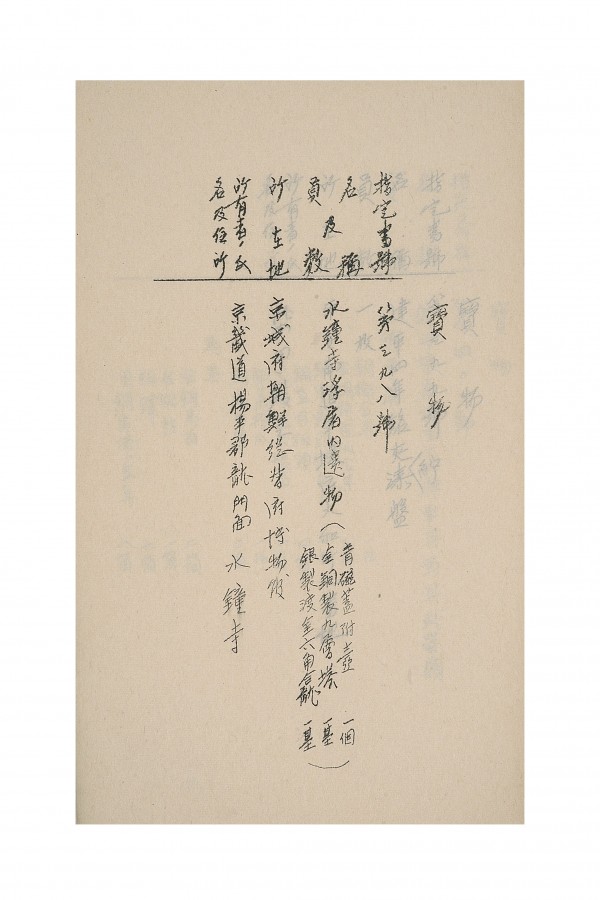 寶物
指定番號 第三九八號
名稱及員數 水鐘寺浮屠內遺物（
青磁蓋附壺 一個
金銅製九層塔 一基
銀製渡金六角合龕 一基）
所在地 京城府朝鮮總督府博物館
所有者ノ氏名及住所 京畿道楊平郡龍門面 水鐘寺